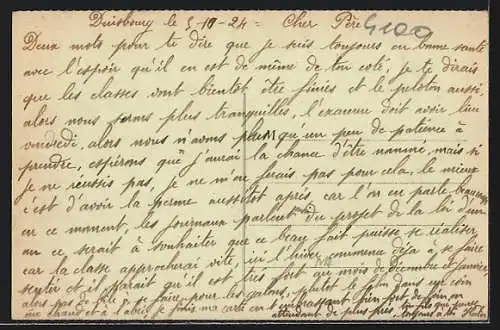 Duisbourg le 5-10-24 = Cher Père
4100
Deux mots pour te dire que je suis toujours en bonne santé
avec l'espoir qu'il en est de même de ton coté. je te dirais
que les classes vont bientôt être finies et le peloton aussi,
alors nous serons plus tranquilles, l'examen doit avoir lieu
vendredi, alors nous n'avons plus que un peu de patience à
prendre, espérons que j'aurai la chance d'être nommé, mais si
je ne réussis pas, je ne m'en ferais pas pour cela, le mieux
c'est d'avoir la perme aussitôt après car l'on en parle beaucoup
en ce moment, les journaux parlent de projet de la loi d'un
an ce serait à souhaiter que ce beau fait puisse se réaliser
car la classe approcherai vite, ici l'hiver commence déjà à se faire
sentir et il parait qu'il est très fort au mois de décembre et janvier
alors pas de bile à se faire pour les galons, plutôt le coin
au chaud et à l'abri, je finis ma carte en t'embrassant bien fort
attendant de plus près